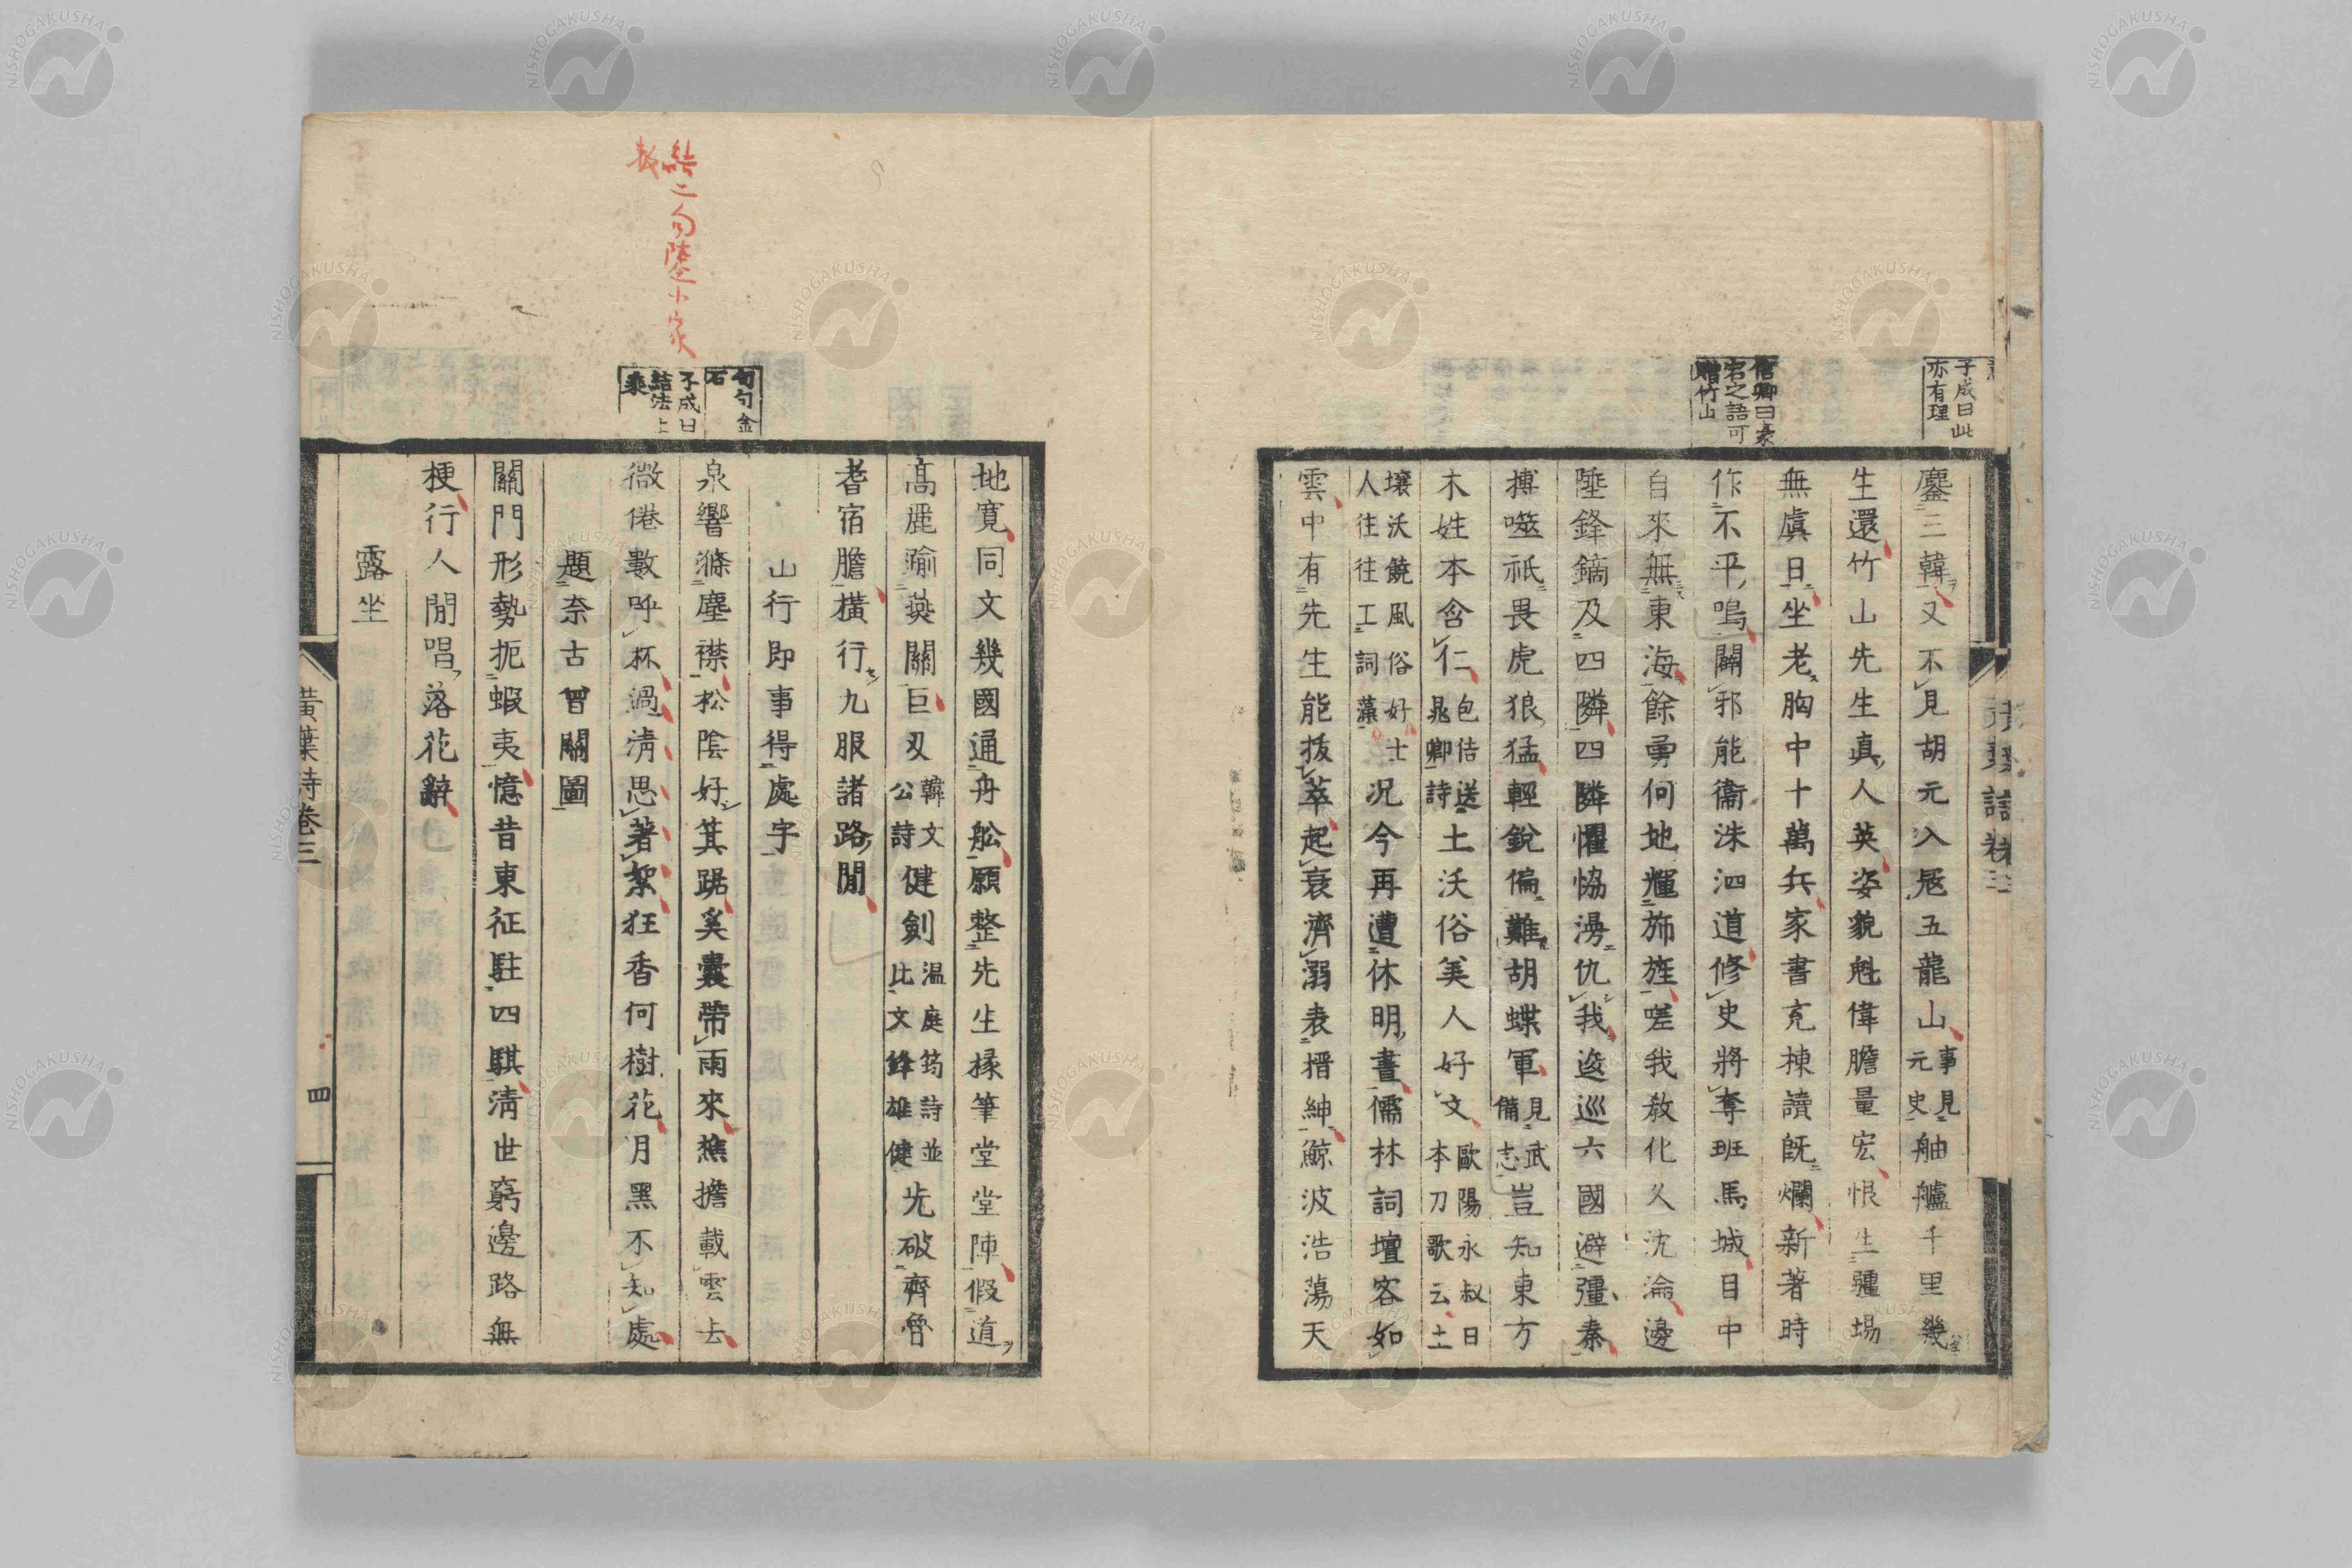 子成曰此
亦有理
信卿曰末
宕之語可
贈竹山
鏖三韓又不見胡元入冦五龍山事見元史舳艫千里幾
生還竹山先生真人英姿貌魁偉膽量宏恨生疆場
無虞日坐老胸中十萬兵家書充棟讀既爛新著時
作不平鳴闢邪能衞洙泗道修史將奪班馬城目中
自來無東海餘勇何地耀斾旌嗟我教化久沈淪邊
陲鋒鏑及四隣四隣懼恊湯仇我逡巡六國避彊秦
搏噬祇畏虎狼猛輕銳偏難胡蝶軍見武備志豈知東方
木姓本含仁包佶送晁卿詩土沃俗美人好文歐陽永叔日本刀歌云土
壤沃饒風俗好士人往往工詞藻况今再遭休明晝儒林詞壇客如
雲中有先生能拔萃起衰濟溺表搢紳鯨波浩蕩天
地寬同文幾國通舟舩願整先生椽筆堂堂陣假道
高麗踰英關巨刃韓文公詩健劍温庭筠詩並比文鋒雄健先破齊魯
耆宿膽橫行九服諸路閒
結二句墮小家
數
句句金
石
子成曰
結法上
乘
山行即事得處字
泉響滌塵襟松陰好箕踞奚囊帶雨來樵擔載雲去
微倦數呼杯過淸思著絮狂香何樹花月黑不知處
題奈古曾關圖
關門形勢扼蝦夷憶昔東征駐四騏淸世窮邊路無
梗行人閒唱落花辭
露坐
黃葉詩卷三
四
NISHOGAKUSHA